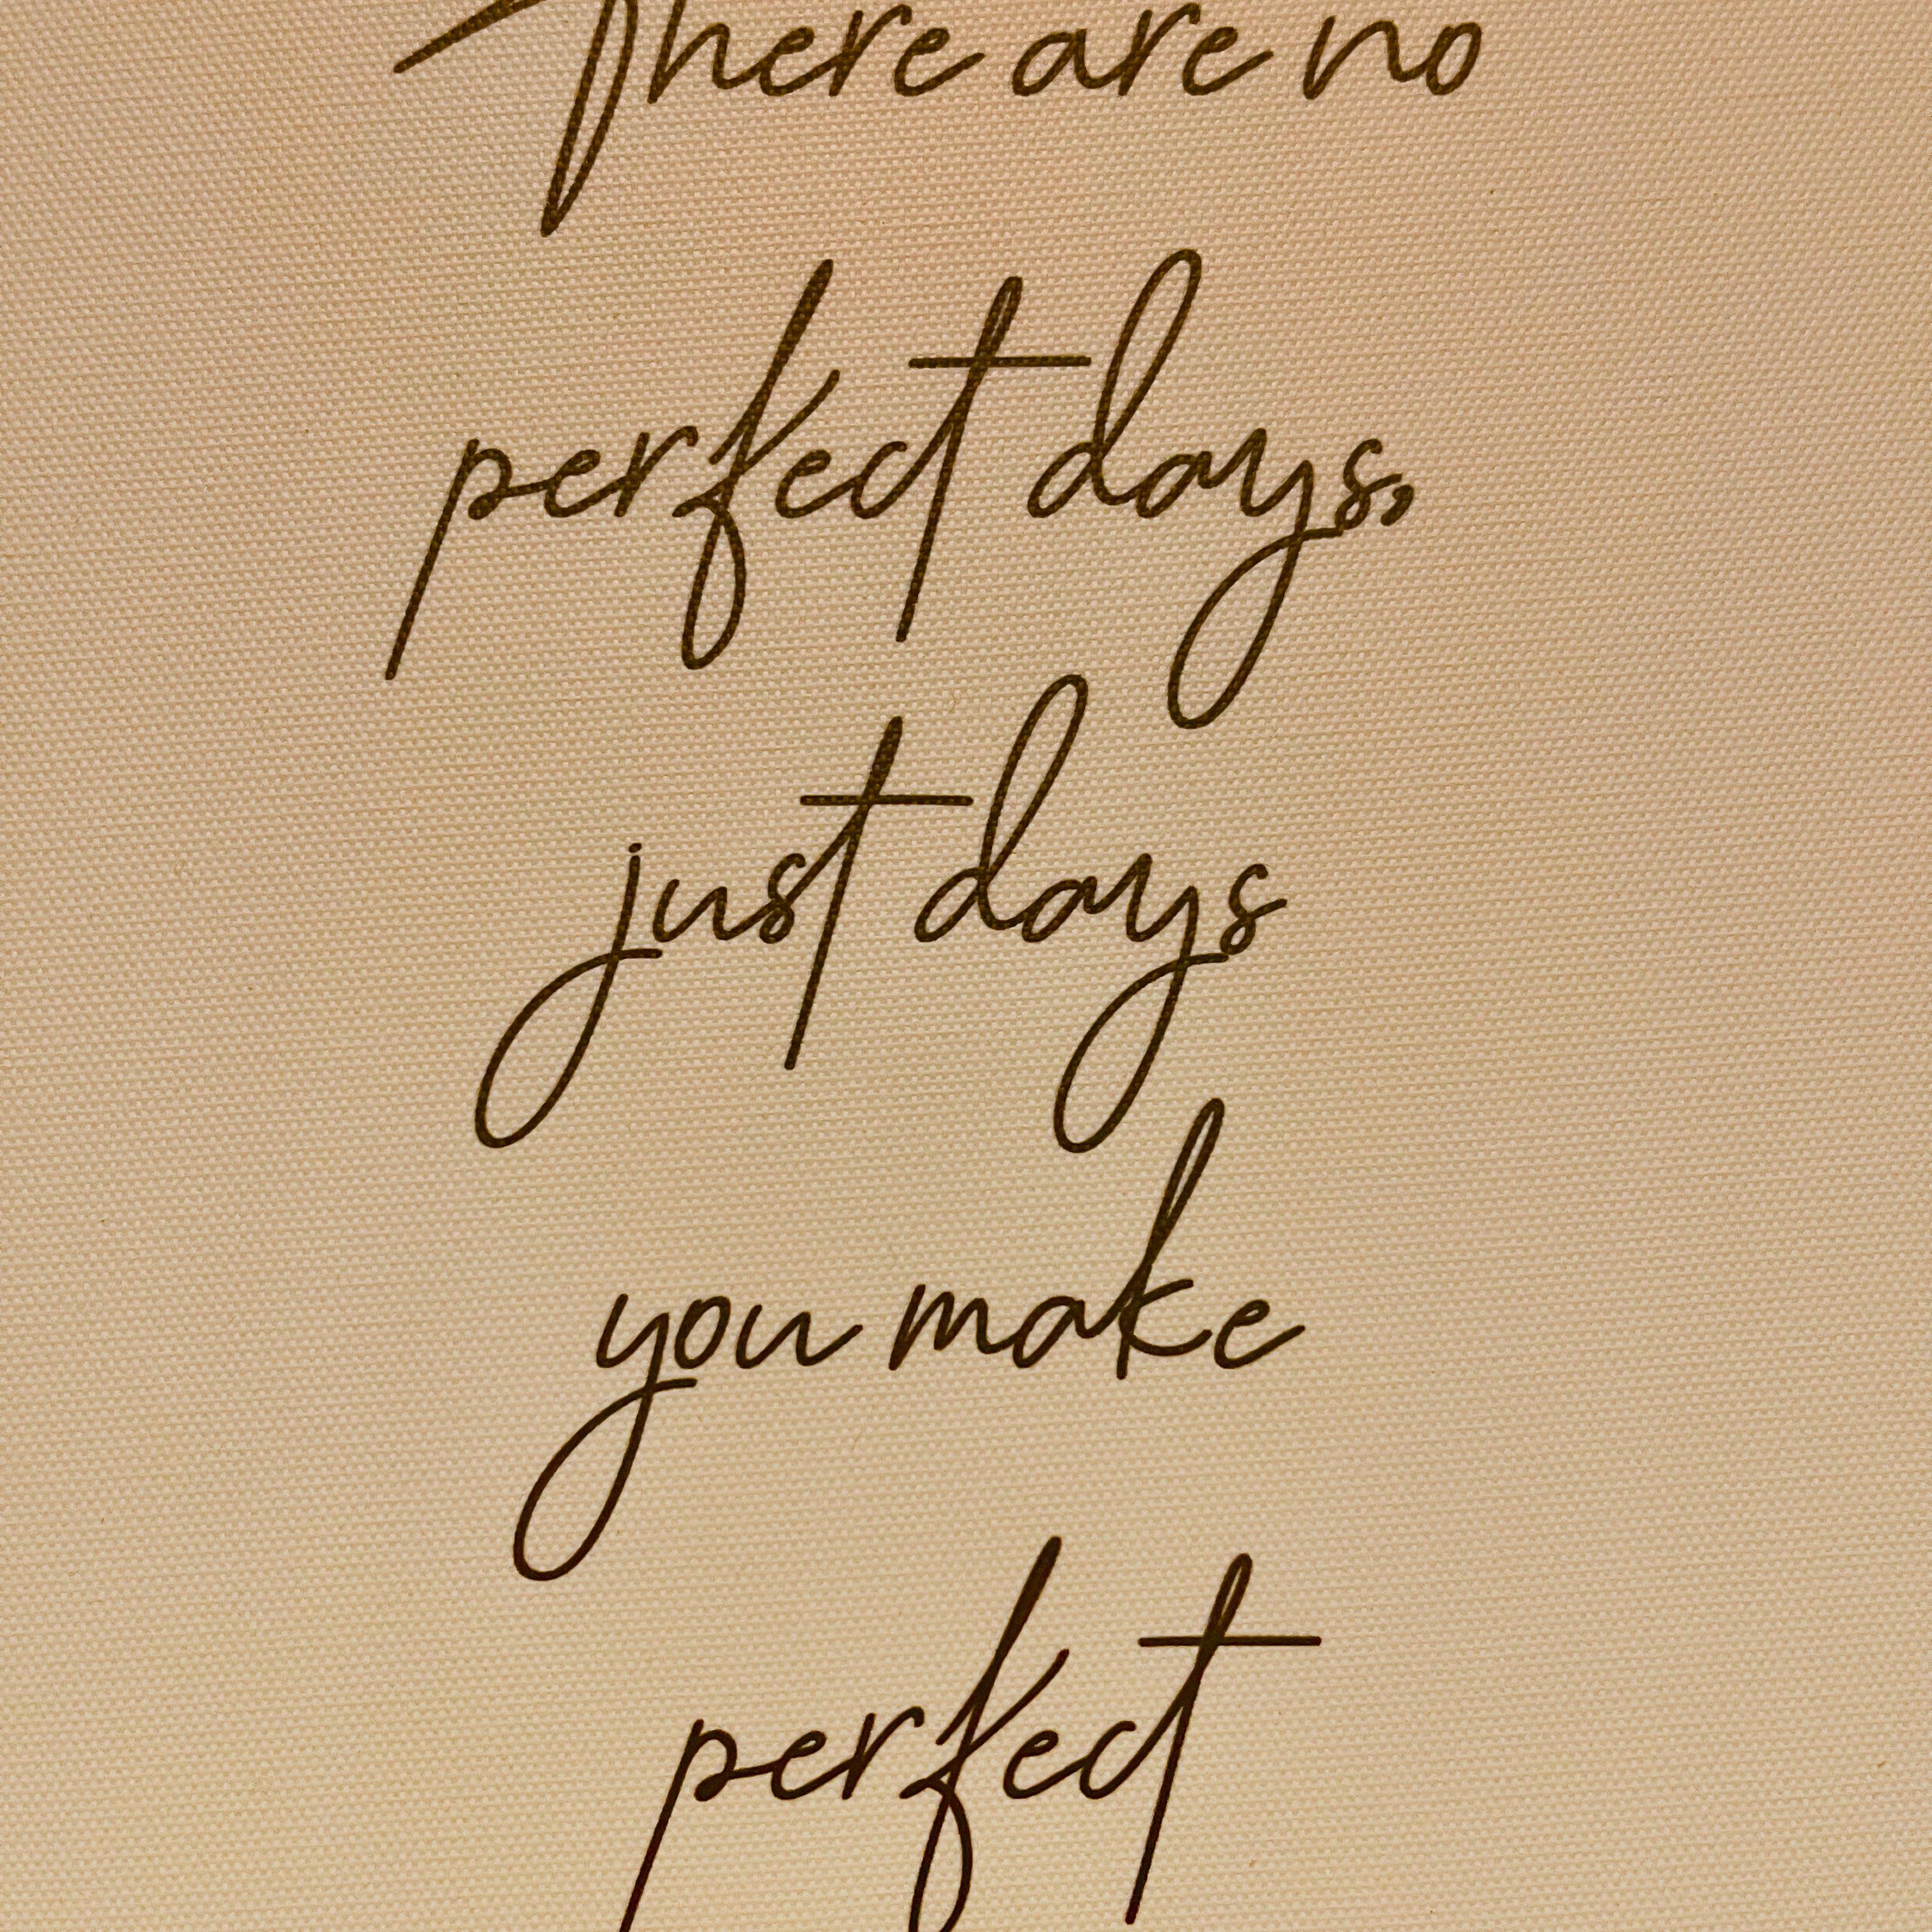 There are no
perfect days,
just days
you make
perfect